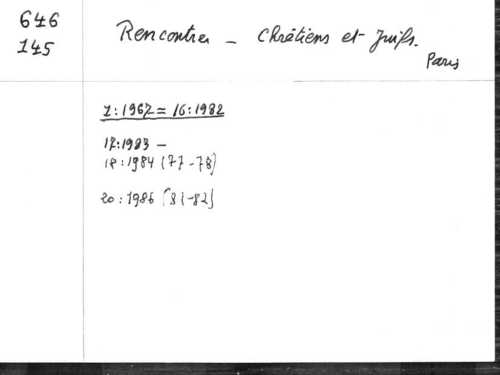 646
145
Rencontre - Chrétiens et Juifs.
Paris
1:1967 = 16:1982
17:1983 -
18:1984 (77-78)
20:1986 (81-82)